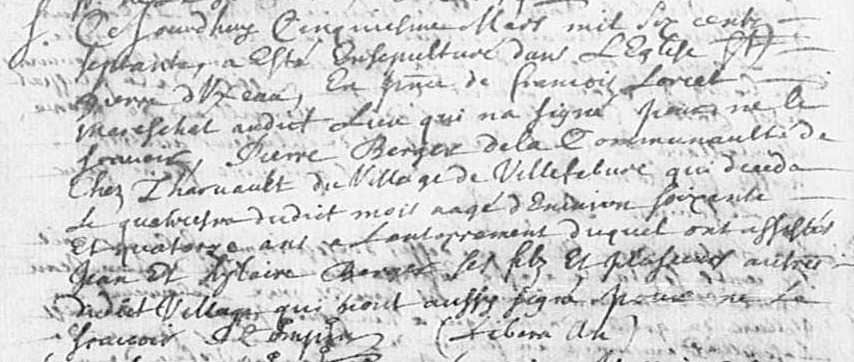 Ce Jourdhuy Cinquiesme Mars mil six cents
septante, a Esté Ensepulturé dans L'Eglise St
pierre d'Vzeau, En pñce de francois Lorcet
mareschal audict Lieu qui na signé pour ne le
scavoir, Pierre Berger de la Communaulté de
Chez Tharuault du Village de Villefebure qui deceda
Le quatriesme dudict mois aagé d'Environ soixante
Et quatorze ans a Lenterrement duquel ont assistés
Jean Et hylaire Berger ses filz Et plusieurs autres
dudict Village qui nont aussy signé pour ne Le
scavoir (Libera &c)